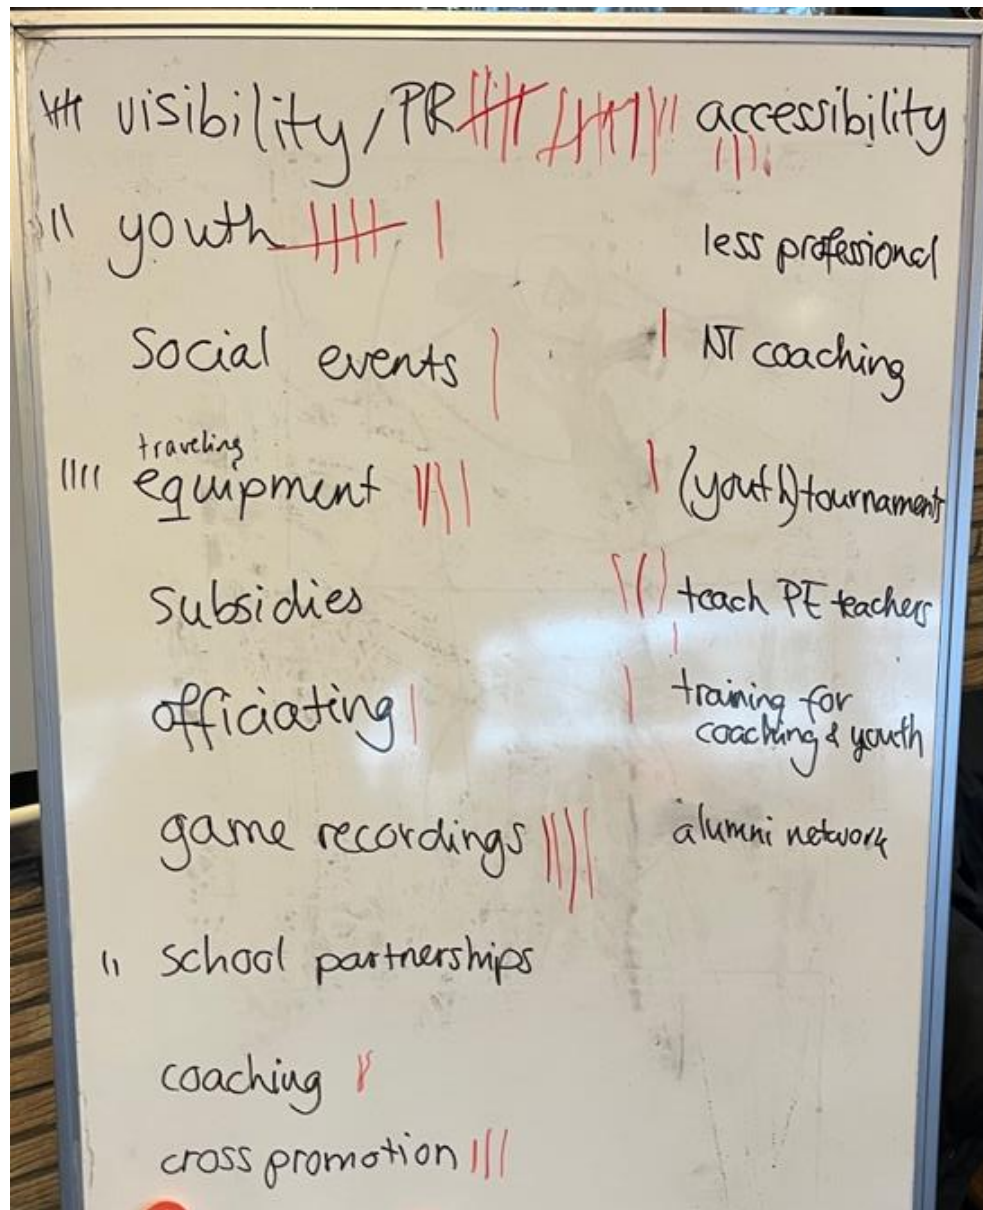 visibility / PR
youth
Social events
traveling
equipment
subsidies
officiating
game recordings
school partnerships
coaching
cross promotion
accessibility
less professional
NT coaching
(youth) tournaments
teach PE teachers
training for
coaching & youth
alumni network